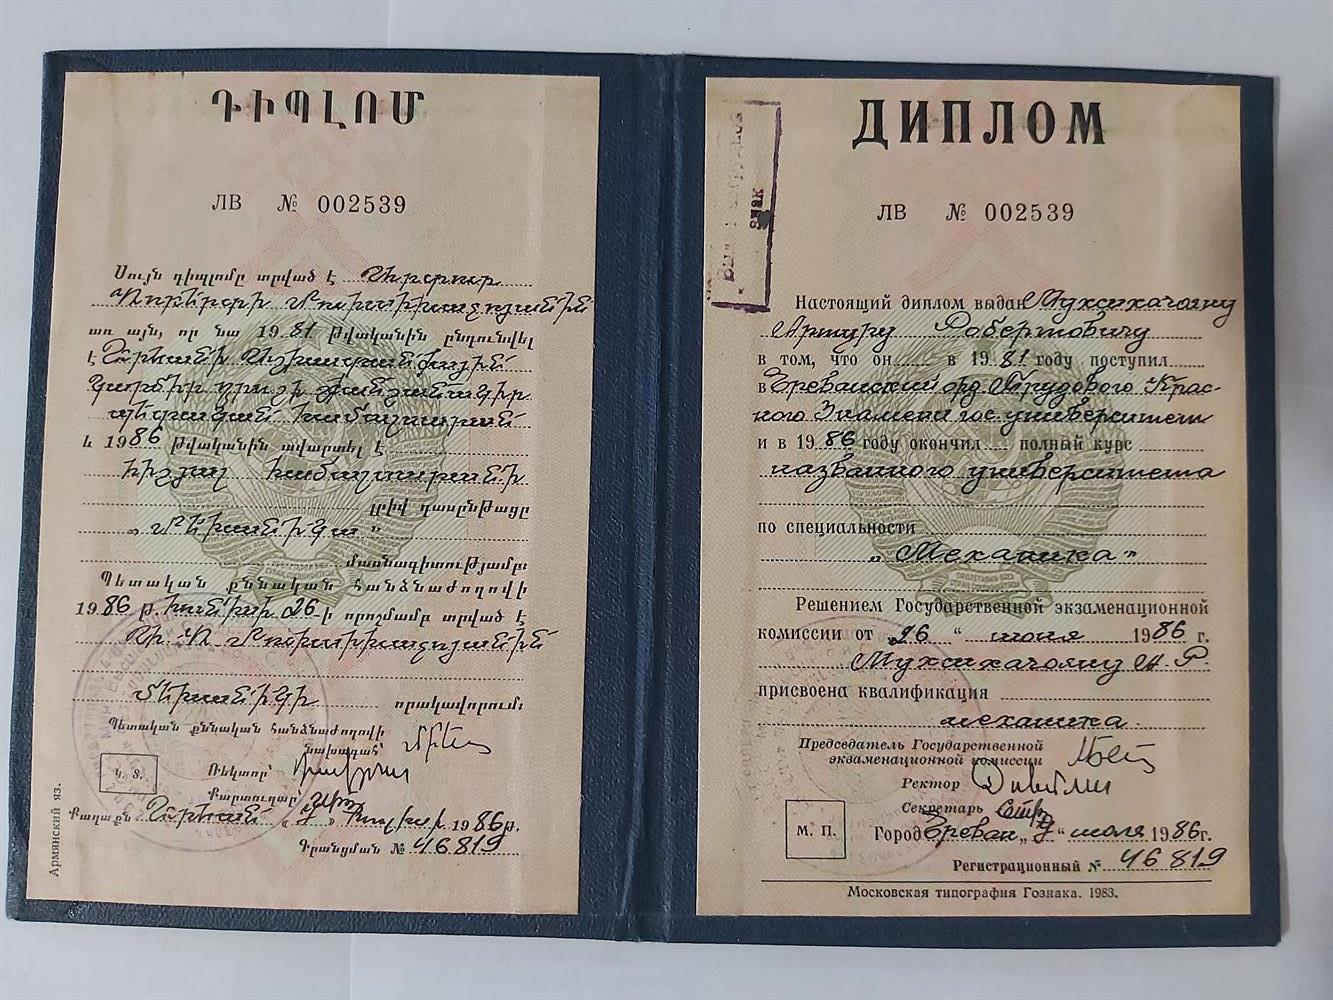 ԴԻՊԼՈՄ
ЛВ № 002539
Սույն դիպլոմը տրված է Արթուր
Ռոբերտի Մուխսիխաչոյանին
առ այն, որ նա 1981 թվականին ընդունվել
է Երևանի Աշխատանքային
Կարմիր դրոշի շքանշանակիր
պետական համալսարան
և 1986 թվականին ավարտել է
հիշյալ համալսարանի
լրիվ դասընթացը
„Մեխանիկա"
մասնագիտությամբ:
Պետական քննական հանձնաժողովի
1986 թ. հունիսի 26-ի որոշմամբ տրված է
Ա. Ռ. Մուխսիխաչոյանին
մեխանիկի որակավորում:
Պետական քննական հանձնաժողովի
նախագահ՝
Ռեկտոր՝
Կ. Տ.
Քարտուղար՝
Քաղաքն Երևան „9" հուլիսի 1986թ.
Գրանցման № 46819
Армянский яз.
ДИПЛОМ
ЛВ № 002539
знак
Настоящий диплом выдан Мухсихачояну
Артуру Робертовичу
в том, что он в 1981 году поступил
в Ереванский орд. Трудового Крас-
ного Знамени гос. университет
и в 1986 году окончил полный курс
названного университета
по специальности
„Механика"
Решением Государственной экзаменационной
комиссии от „26" июня 1986 г.
Мухсихачояну А. Р.
присвоена квалификация
механика.
Председатель Государственной
экзаменационной комиссии
Ректор
Секретарь
М. П.
Город Ереван „9" июля 1986г.
Регистрационный № 46819
Московская типография Гознака. 1983.